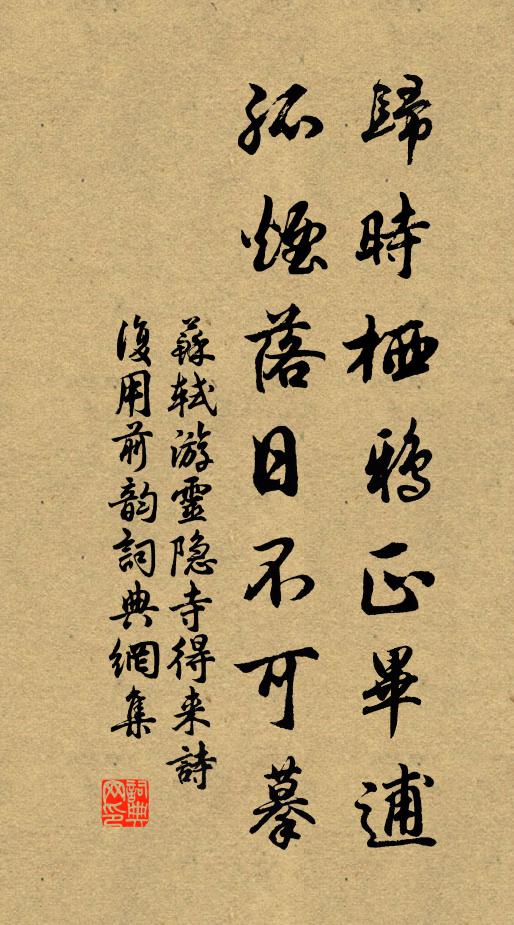 歸時栖鴉正畢逋
孤煙落日不可摹
蘇軾游靈隐寺得来詩
復用前韵詞典網集
詞典網印